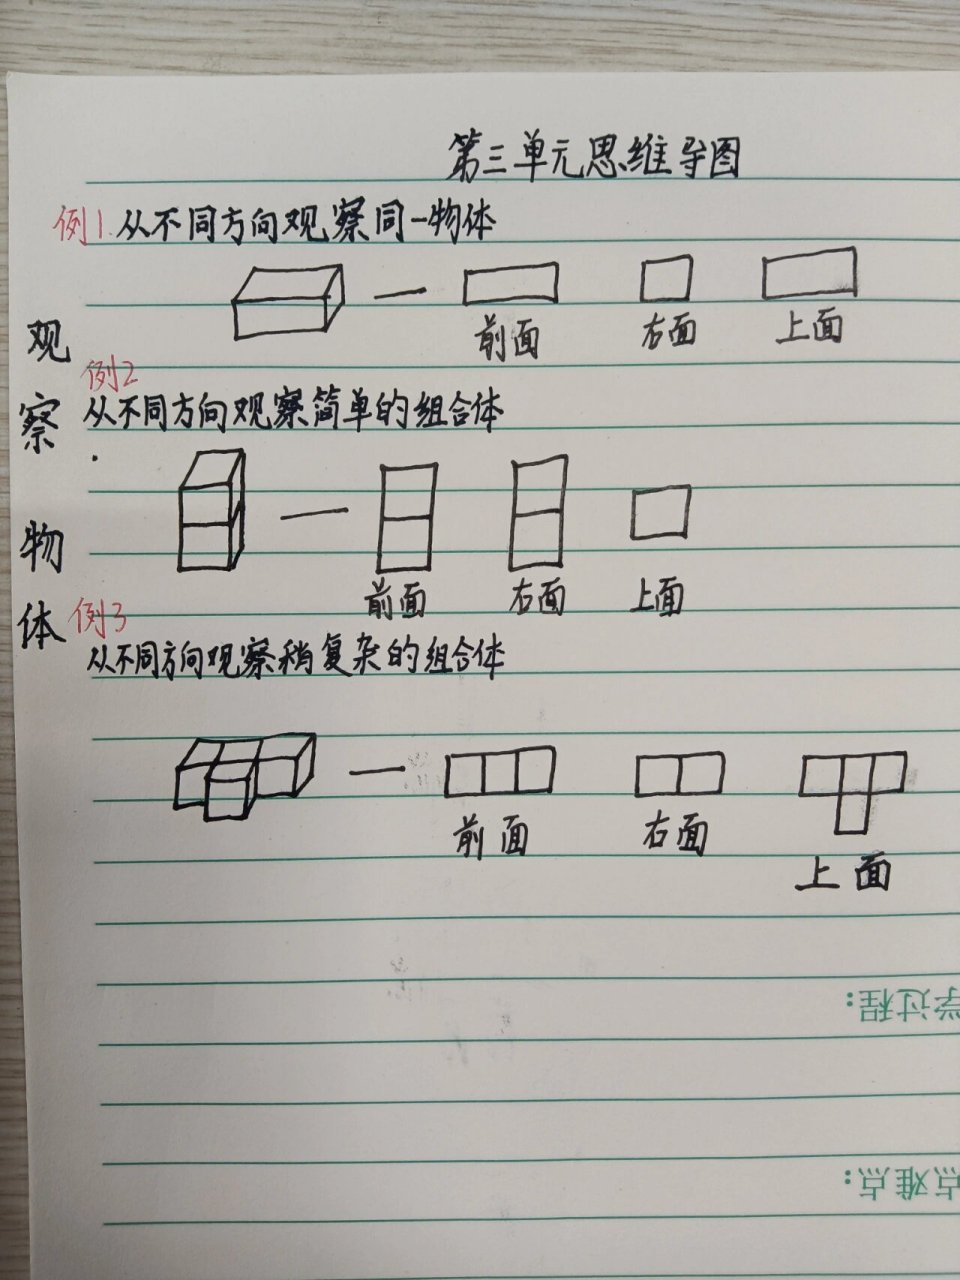 第三单元思维导图
例1.从不同方向观察同一物体
前面 右面 上面
观察物体
例2
从不同方向观察简单的组合体
前面 右面 上面
例3
从不同方向观察稍复杂的组合体
前面 右面 上面
学过程:
点难点: